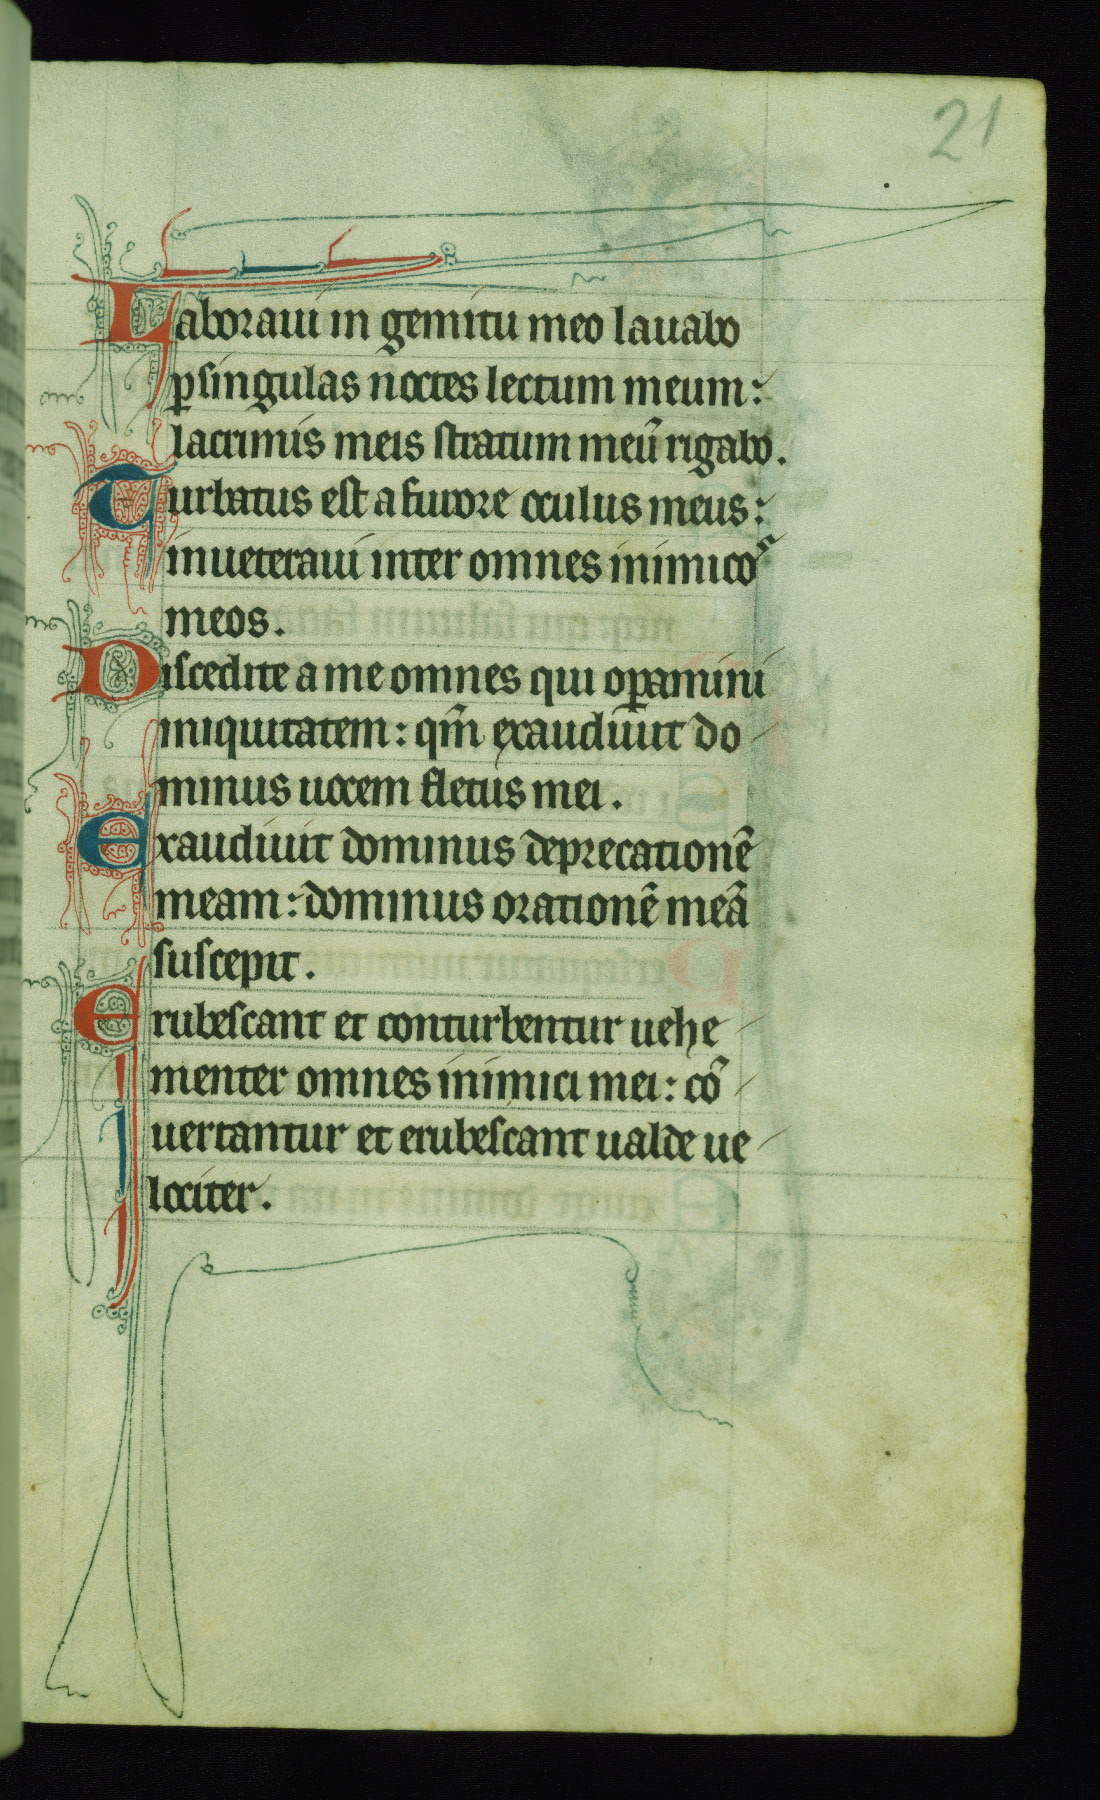 21
Laboraui in gemitu meo lauabo
ꝑ singulas noctes lectum meum:
lacrimis meis stratum meū rigabo.
Turbatus est a furore oculus meus:
inueteraui inter omnes inimicos
meos.
Discedite a me omnes qui oꝑamini
iniquitatem: qm̄ exaudiuit do
minus uocem fletus mei.
Exaudiuit dominus deprecationē
meam: dominus orationē meā
suscepit.
Erubescant et conturbentur uehe
menter omnes inimici mei: cō
uertantur et erubescant ualde ue
lociter.